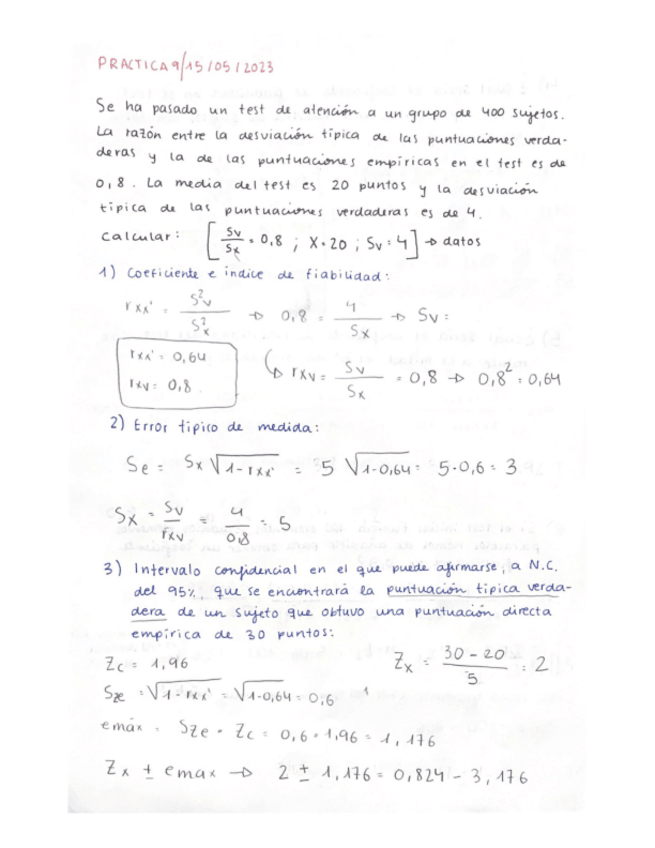 PRACTICA 9/15/05/2023
Se ha pasado un test de atención a un grupo de 400 sujetos.
La razón entre la desviación típica de las puntuaciones verda-
deras y la de las puntuaciones empíricas en el test es de
0,8. La media del test es 20 puntos y la desviación
típica de las puntuaciones verdaderas es de 4.
Calcular: [Sv/Sx = 0,8 ; X = 20 ; Sv = 4] → datos
1) Coeficiente e índice de fiabilidad:
rxx' = S²v/S²x → 0,8 = 4/Sx → Sv =
rxx' = 0,64
rxv = 0,8
→ rxv = Sv/Sx = 0,8 → 0,8² = 0,64
2) Error típico de medida:
Se = Sx √1-rxx' = 5 √1-0,64 = 5·0,6 = 3
Sx = Sv/rxv = 4/0,8 = 5
3) Intervalo confidencial en el que puede afirmarse, a N.C.
del 95%, que se encontrará la puntuación típica verda-
dera de un sujeto que obtuvo una puntuación directa
empírica de 30 puntos:
Zc = 1,96
Zx = 30 - 20/5 = 2
Sze = √1-rxx' = √1-0,64 = 0,6
emáx = Sze · Zc = 0,6 · 1,96 = 1,176
Zx ± emax → 2 ± 1,176 = 0,824 - 3,176